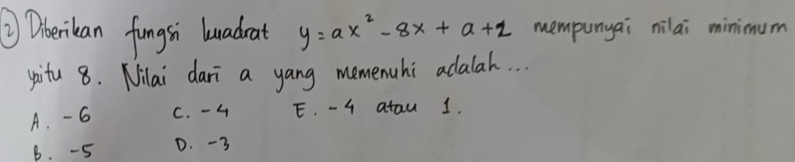 ② Diberikan fungsi kuadrat y = ax² - 8x + a + 2 mempunyai nilai minimum
yaitu 8. Nilai dari a yang memenuhi adalah ...
A. -6 C. -4 E. -4 atau 1.
B. -5 D. -3